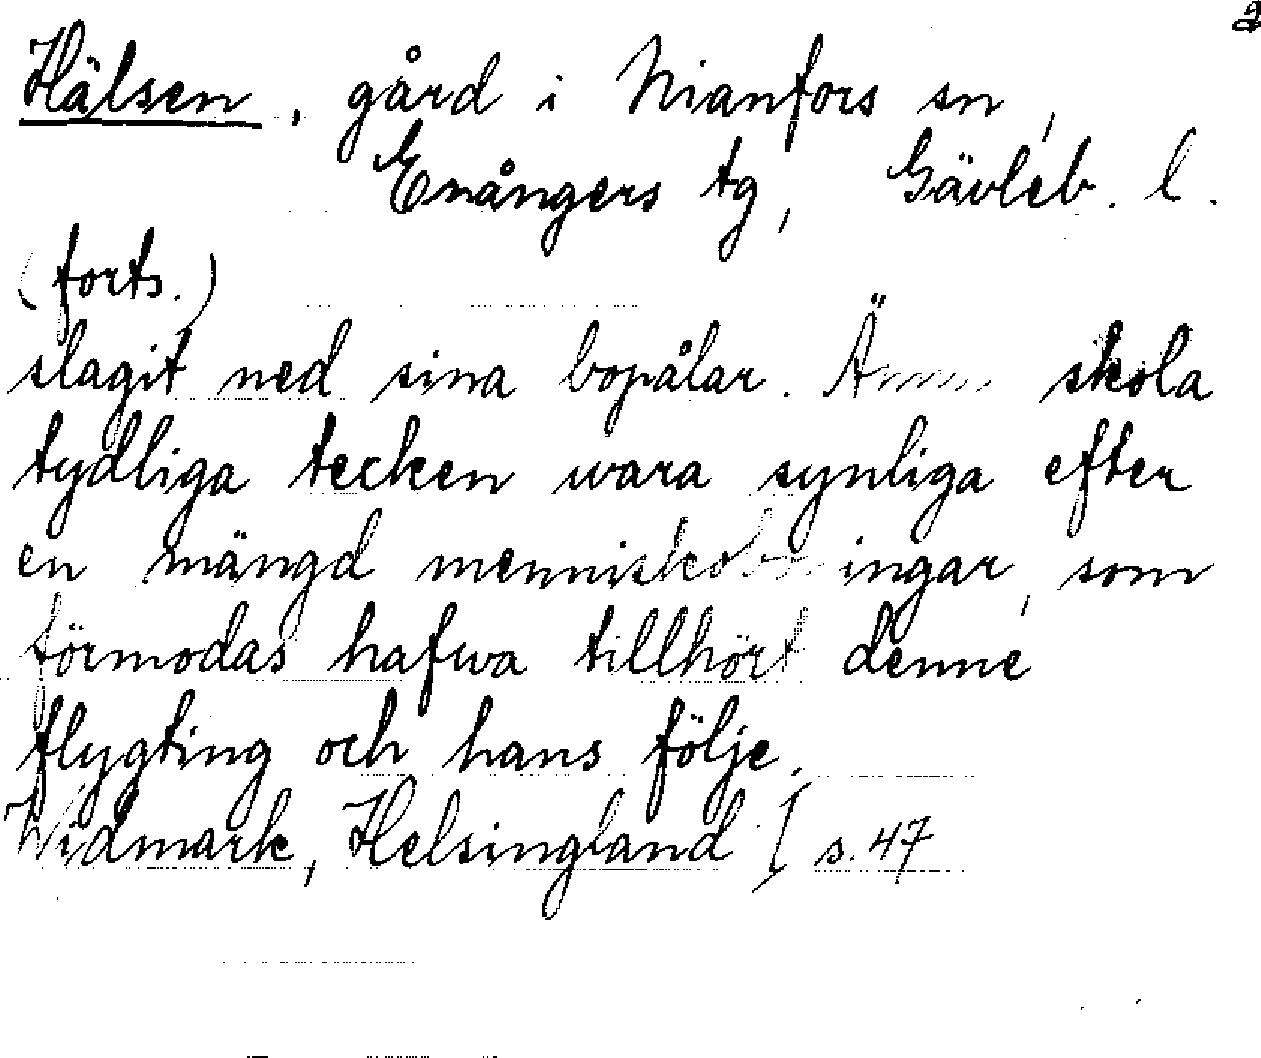 2
Hälsen, gård i Nianfors sn,
Enångers tg, Gävleb. l.
(forts.)
slagit ned sina bopålar. Ännu skola
tydliga tecken wara synliga efter
en mängd menniskoboningar, som
förmodas hafwa tillhört denne
flygting och hans följe.
Widmark, Helsingland I s. 47